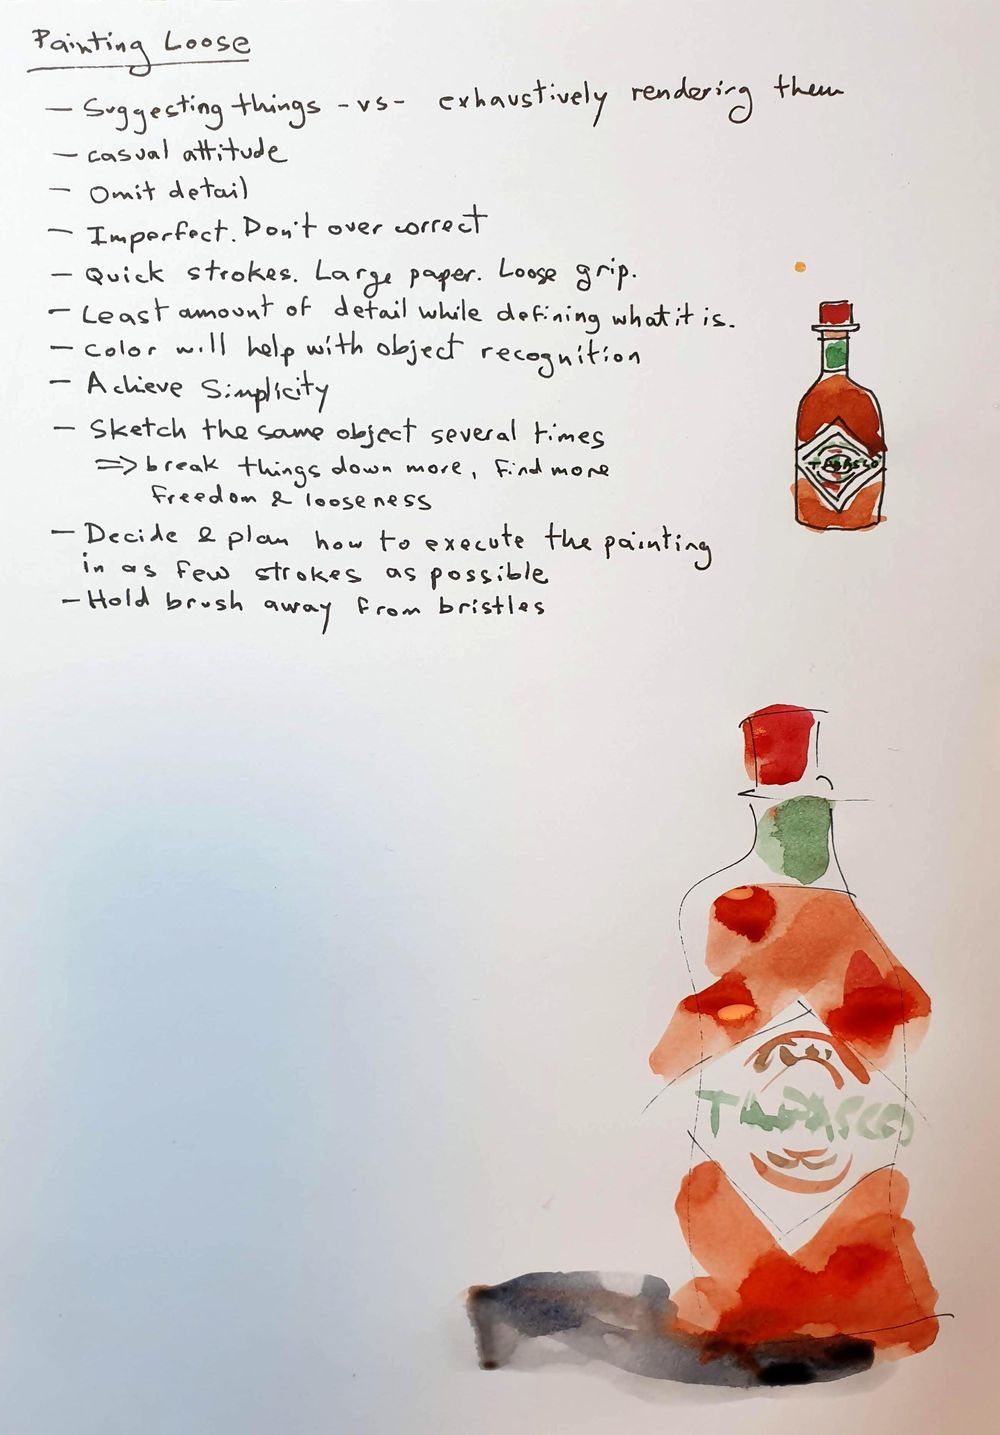 Painting Loose
- Suggesting things -vs- exhaustively rendering them
- casual attitude
- Omit detail
- Imperfect. Don't over correct
- Quick strokes. Large paper. Loose grip.
- Least amount of detail while defining what it is.
- Color will help with object recognition
- Achieve Simplicity
- Sketch the same object several times
=> break things down more, find more
freedom & looseness
- Decide & plan how to execute the painting
in as few strokes as possible
- Hold brush away from bristles
TABASCO
TABASCO